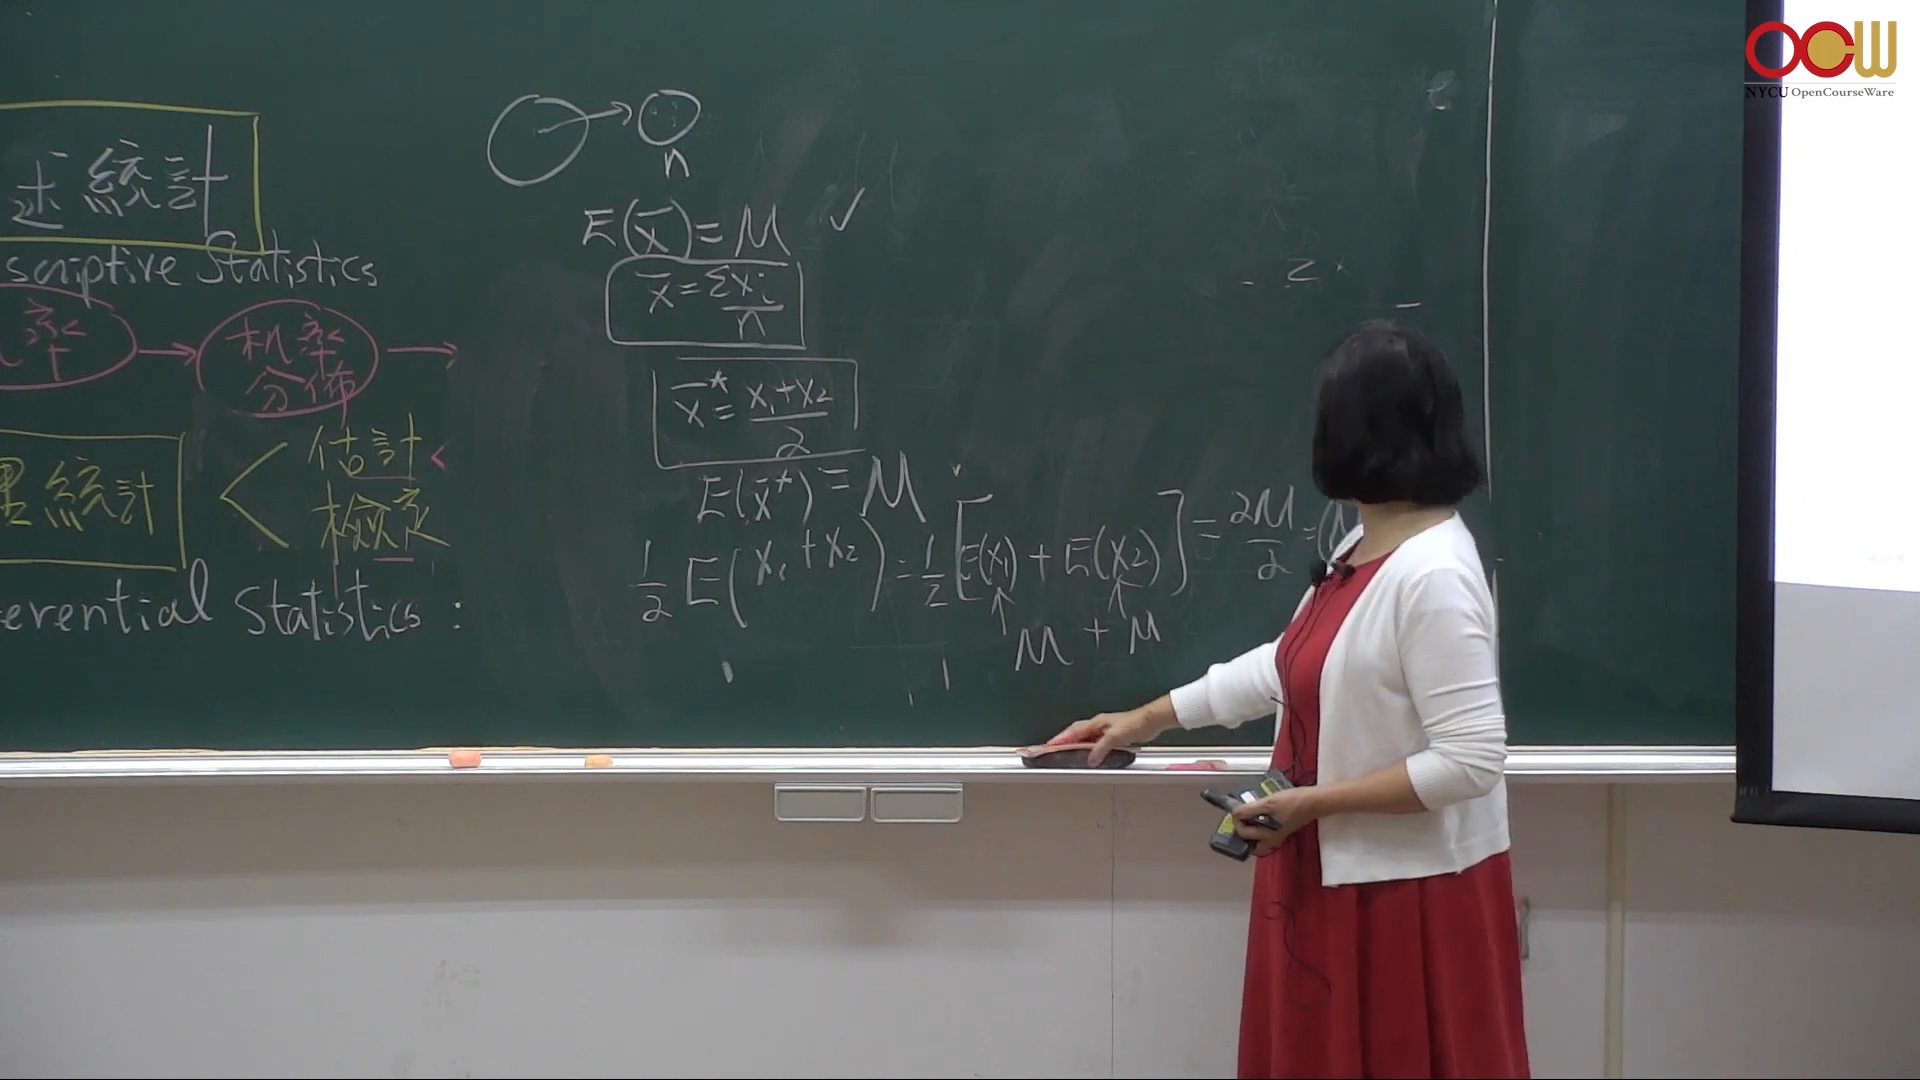 OCW
NYCU OpenCourseWare
述統計
scriptive Statistics
率 → 机率分佈 →
統計 < 估計 <
檢定
erential Statistics :
n
E(x̄) = M ✓
x̄ = Σxi / n
x̄* = x₁+x₂ / 2
E(x̄*) = M
1/2 E(x₁+x₂) = 1/2 [E(x₁) + E(x₂)] = 2M/2 =
↑ ↑
M + M